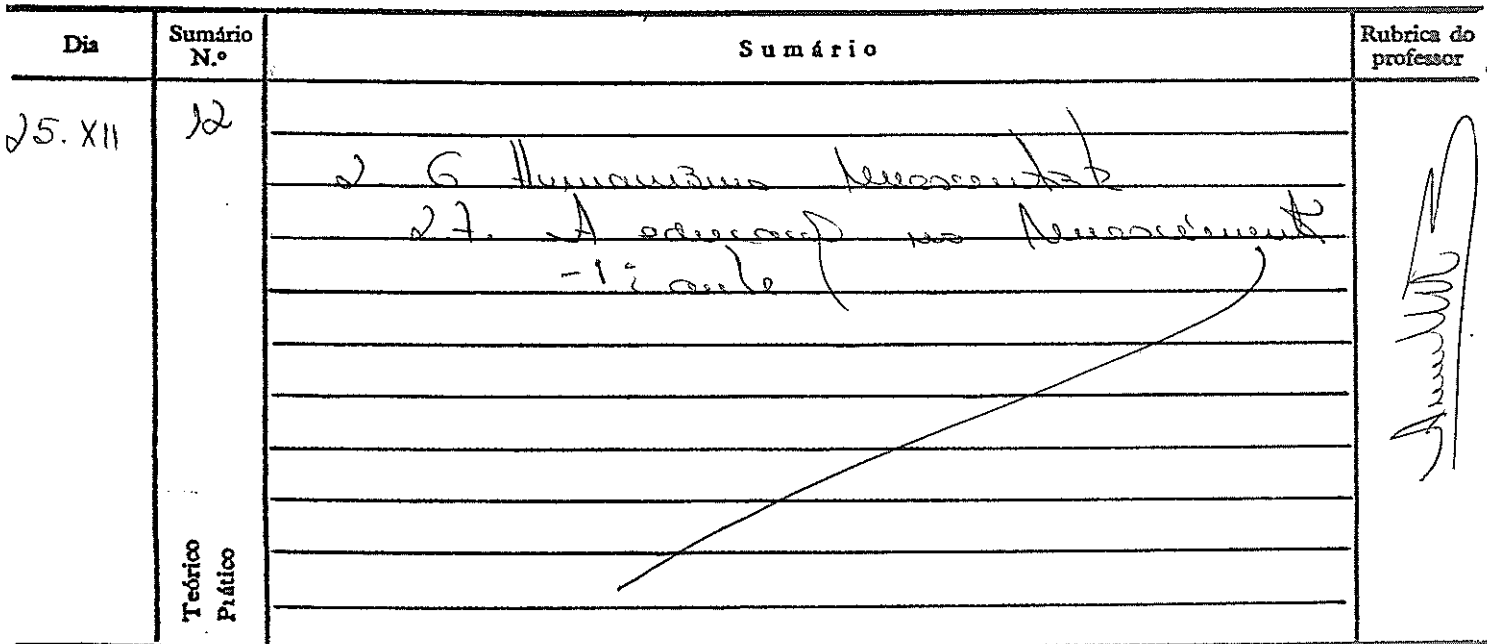 Dia Sumário N.º Sumário Rubrica do professor
25. XII 12
2 6 Humanismo Renascentista
2 7. A educação no Renascimento
- 1ª aula
Teórico
Prático